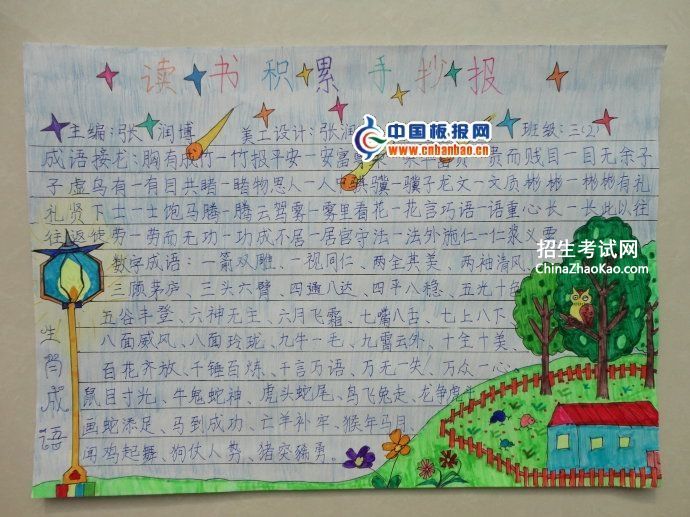 读书积累手抄报
主编:张润博 美工设计:张润 班级:三(2)
中国板报网
www.cnbanbao.cn
成语接龙:胸有成竹一竹报平安一安富 贵而贱目一目无余子
子虚乌有一有目共睹一睹物思人一人中骐骥一骥子龙文一文质彬彬一彬彬有礼
礼贤下士一士饱马腾一腾云驾雾一雾里看花一花言巧语一语重心长一长此以往
往返徒劳一劳而无功一功成不居一居官守法一法外施仁一仁浆义粟
招生考试网
ChinaZhaoKao.com
数字成语:一箭双雕、一视同仁、两全其美、两袖清风、
三顾茅庐、三头六臂、四通八达、四平八稳、五光十色
五谷丰登、六神无主、六月飞霜、七嘴八舌、七上八下、
八面威风、八面玲珑、九牛一毛、九霄云外、十全十美、
百花齐放、千锤百炼、千言万语、万无一失、万众一心
生肖成语
鼠目寸光、牛鬼蛇神、虎头蛇尾、乌飞兔走、龙争虎斗
画蛇添足、马到成功、亡羊补牢、猴年马月
闻鸡起舞、狗仗人势、猪突豨勇。